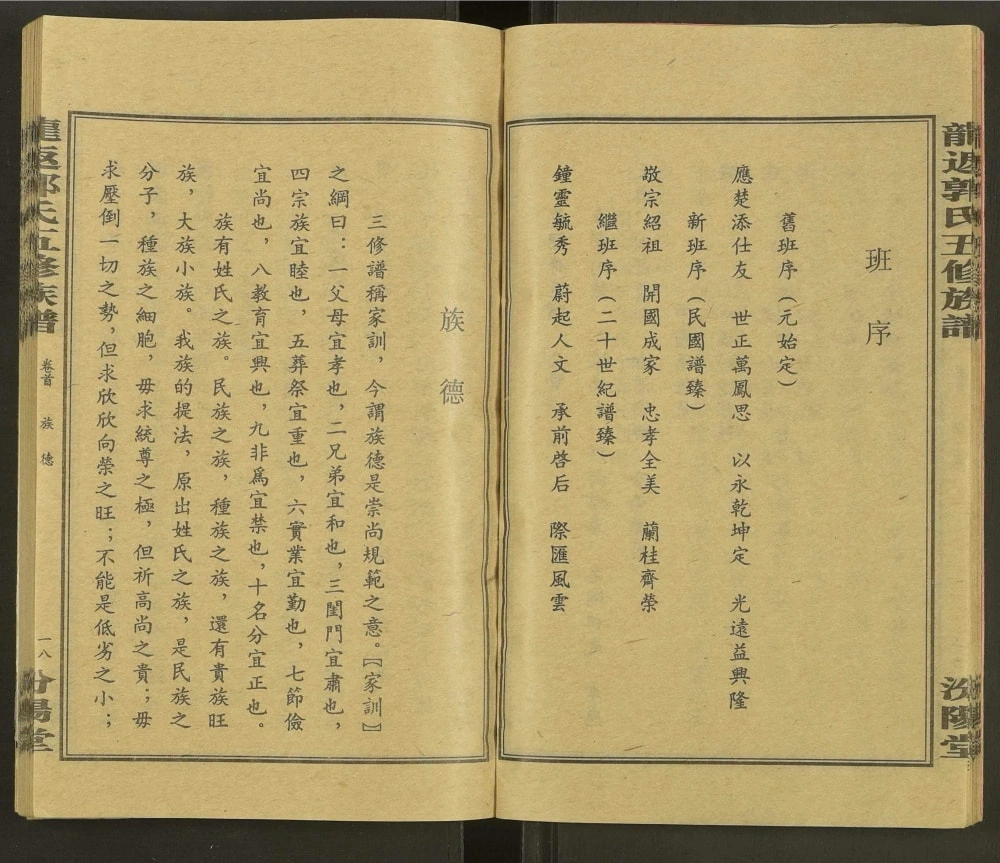 龍退郭氏五修族譜
汾陽堂
班序
舊班序（元始定）
應楚添仕友 世正萬鳳思 以永乾坤定 光遠益興隆
新班序（民國譜臻）
敬宗紹祖 開國成家 忠孝全美 蘭桂齊榮
繼班序（二十世紀譜臻）
鐘靈毓秀 蔚起人文 承前啓后 際匯風雲
族德
三修譜稱家訓，今謂族德是崇尚規範之意。【家訓】
之綱曰：一父母宜孝也，二兄弟宜和也，三閨門宜肅也，
四宗族宜睦也，五葬祭宜重也，六實業宜勤也，七節儉
宜尚也，八教育宜興也，九非爲宜禁也，十名分宜正也。
族有姓氏之族。民族之族，種族之族，還有貴族旺
族，大族小族。我族的提法，原出姓氏之族，是民族之
分子，種族之細胞，毋求統尊之極，但祈高尚之貴；毋
求壓倒一切之勢，但求欣欣向榮之旺；不能是低劣之小；
龍退郭氏五修族譜
卷首 族德
一八
汾陽堂